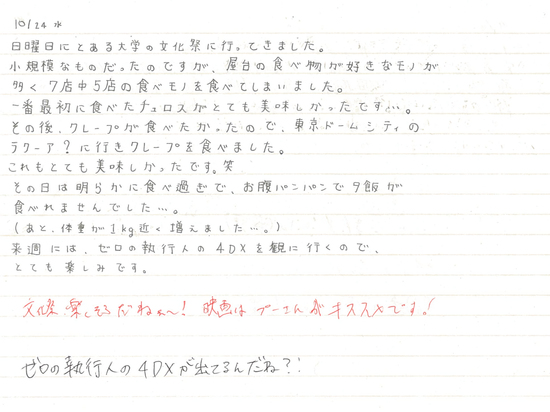 10/24 水
日曜日にとある大学の文化祭に行ってきました。
小規模なものだったのですが、屋台の食べ物が好きなモノが
多く7店中5店の食べモノを食べてしまいました。
一番最初に食べたチュロスがとても美味しかったです…。
その後、クレープが食べたかったので、東京ドームシティの
ラクーア?に行きクレープを食べました。
これもとても美味しかったです。笑
その日は明らかに食べ過ぎで、お腹パンパンで夕飯が
食べれませんでした…。
(あと、体重が1kg近く増えました…。)
来週には、ゼロの執行人の4DXを観に行くので、
とても楽しみです。
文化祭楽しそうだねぇ〜! 映画はプーさんがオススメです!
ゼロの執行人の4DXが出てるんだね?!